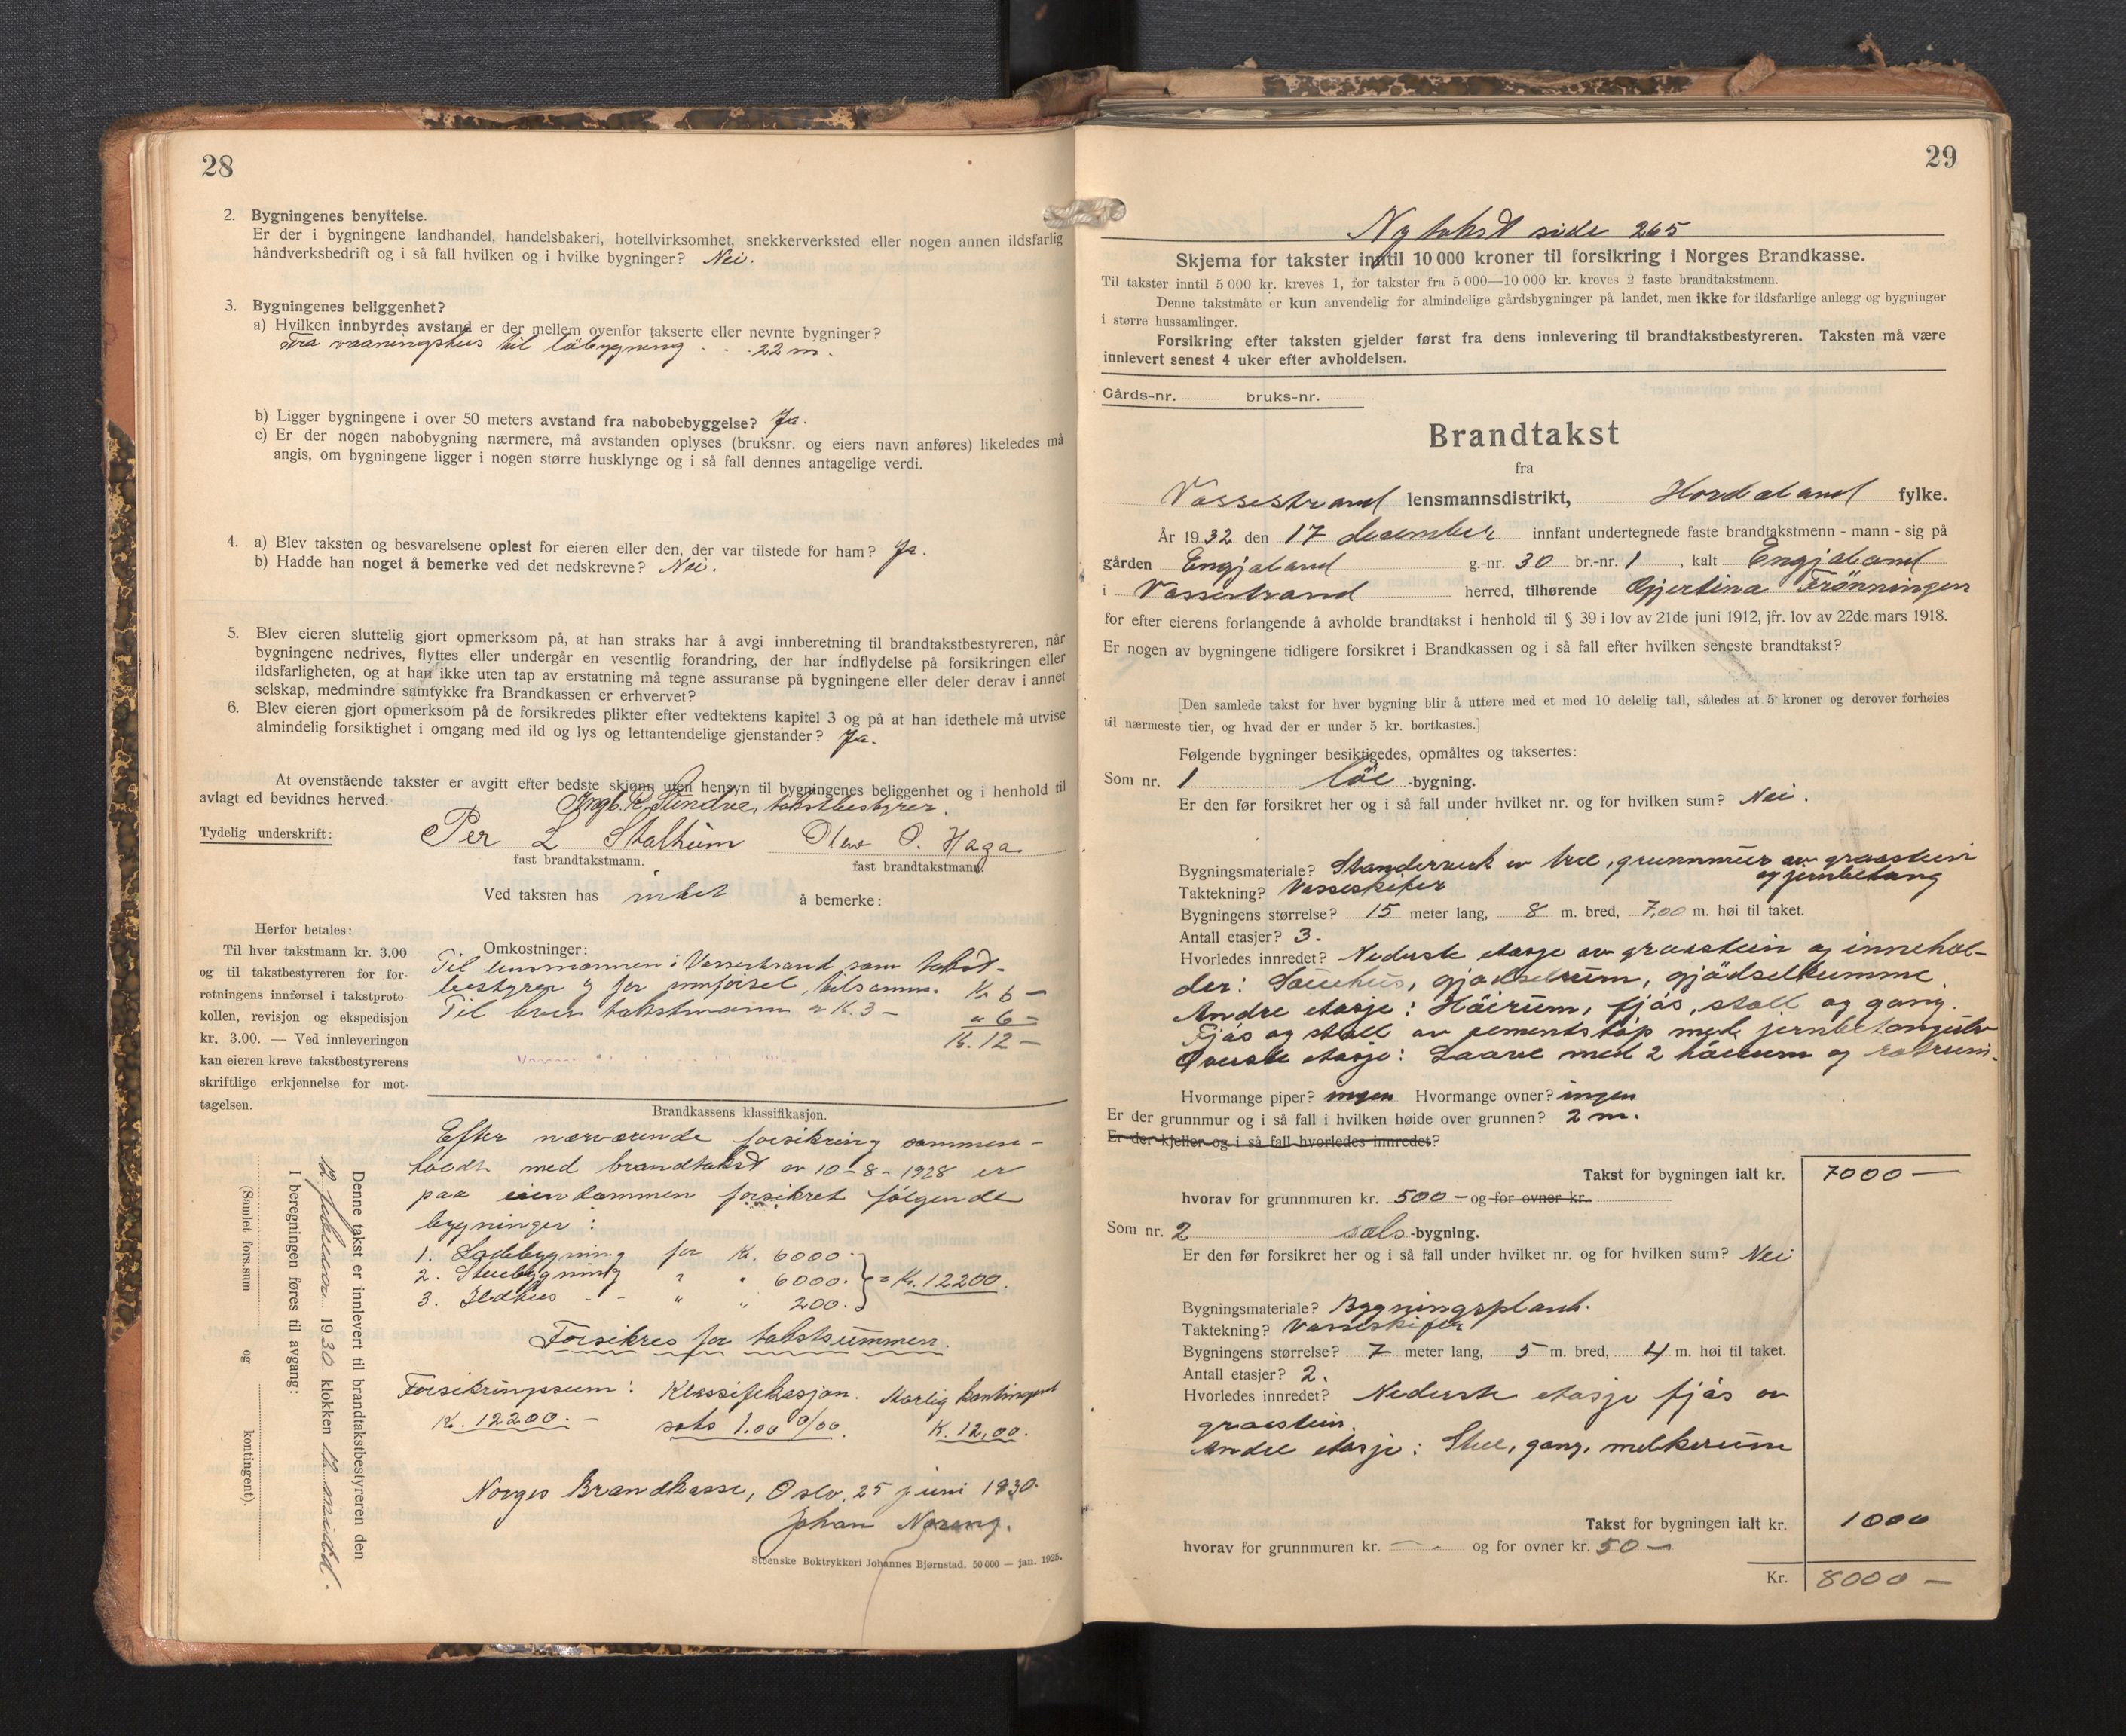 28
2. Bygningenes benyttelse.
Er der i bygningene landhandel, handelsbakeri, hotellvirksomhet, snekkerverksted eller nogen annen ildsfarlig
håndverksbedrift og i så fall hvilken og i hvilke bygninger? Nei.
3. Bygningenes beliggenhet?
a) Hvilken innbyrdes avstand er der mellem ovenfor takserte eller nevnte bygninger?
Fra vaaningshus til löbygning . . . 22 m.
b) Ligger bygningene i over 50 meters avstand fra nabobebyggelse? Ja.
c) Er der nogen nabobygning nærmere, må avstanden oplyses (bruksnr. og eiers navn anføres) likeledes må
angis, om bygningene ligger i nogen større husklynge og i så fall dennes antagelige verdi.
4. a) Blev taksten og besvarelsene oplest for eieren eller den, der var tilstede for ham? Ja.
b) Hadde han noget å bemerke ved det nedskrevne? Nei.
5. Blev eieren sluttelig gjort opmerksom på, at han straks har å avgi innberetning til brandtakstbestyreren, når
bygningene nedrives, flyttes eller undergår en vesentlig forandring, der har indflydelse på forsikringen eller
ildsfarligheten, og at han ikke uten tap av erstatning må tegne assuranse på bygningene eller deler derav i annet
selskap, medmindre samtykke fra Brandkassen er erhvervet?
6. Blev eieren gjort opmerksom på de forsikredes plikter efter vedtektens kapitel 3 og på at han idethele må utvise
almindelig forsiktighet i omgang med ild og lys og lettantendelige gjenstander? Ja.
At ovenstående takster er avgitt efter bedste skjønn uten hensyn til bygningenes beliggenhet og i henhold til
avlagt ed bevidnes herved. Ingb. R. Slundre, takstbestyrer.
Tydelig underskrift: Per L Stalheim Olav O. Haga
fast brandtakstmann. fast brandtakstmann.
Ved taksten has intet å bemerke:
Herfor betales:
Til hver takstmann kr. 3.00
og til takstbestyreren for for-
retningens innførsel i takstproto-
kollen, revisjon og ekspedisjon
kr. 3.00. — Ved innleveringen
kan eieren kreve takstbestyrerens
skriftlige erkjennelse for mot-
tagelsen.
Omkostninger:
Til lensmannen i Vossestrand som takst-
bestyrer og for innförsel, tilsamm. Kr 6 —
Til hver takstmann a K. 3 — " 6 —
K. 12 —
Brandkassens klassifikasjon.
Efter nærværende forsikring sammen-
holdt med brandtakst av 10-8-1928 er
paa eiendommen forsikret følgende
bygninger:
1. Ladebygning for Kr. 6000.
2. Stuebygning " " 6000. = Kr. 12200.
3. Ildhus - - " " 200.
Forsikres for takstsummen.
Forsikringssum: Klassifikasjon. Aarlig kontingent
K. 12200. — sats 1.00 0/00. K. 12,00.
Norges Brandkasse, Oslo, 25 juni 1930.
Johan
Steenske Boktrykkeri Johannes Bjørnstad. 50 000 — jan. 1925.
Denne takst er innlevert til brandtakstbestyreren den
12 februar 1930 klokken 12 middd.
I beregningen føres til avgang:
(Samlet fors.sum og kontingent).
29
Ny takst side 265
Skjema for takster inntil 10 000 kroner til forsikring i Norges Brandkasse.
Til takster inntil 5 000 kr. kreves 1, for takster fra 5 000—10 000 kr. kreves 2 faste brandtakstmenn.
Denne takstmåte er kun anvendelig for almindelige gårdsbygninger på landet, men ikke for ildsfarlige anlegg og bygninger
i større hussamlinger.
Forsikring efter taksten gjelder først fra dens innlevering til brandtakstbestyreren. Taksten må være
innlevert senest 4 uker efter avholdelsen.
Gårds-nr. bruks-nr.
Brandtakst
fra
Vossestrand lensmannsdistrikt, Hordaland fylke.
År 1932 den 17 december innfant undertegnede faste brandtakstmenn - mann - sig på
gården Engjaland g.-nr. 30 br.-nr. 1, kalt Engjaland
i Vossestrand herred, tilhørende Gjertina Frönningen
for efter eierens forlangende å avholde brandtakst i henhold til § 39 i lov av 21de juni 1912, jfr. lov av 22de mars 1918.
Er nogen av bygningene tidligere forsikret i Brandkassen og i så fall efter hvilken seneste brandtakst?
[Den samlede takst for hver bygning blir å utføre med et med 10 delelig tall, således at 5 kroner og derover forhøies
til nærmeste tier, og hvad der er under 5 kr. bortkastes.]
Følgende bygninger besiktigedes, opmåltes og taksertes:
Som nr. 1 löe -bygning.
Er den før forsikret her og i så fall under hvilket nr. og for hvilken sum? Nei.
Bygningsmateriale? Standerverk av tre, grunnmur av graastein
og jernbetang
Taktekning? Vosseskifer
Bygningens størrelse? 15 meter lang, 8 m. bred, 7,00 m. høi til taket.
Antall etasjer? 3.
Hvorledes innredet? Nederste etasje av graastein og innehol-
der: Sauehus, gjødselrum, gjödselkumme
Andre etasje: Höirum, fjös, stall og gang.
Fjös og stall av sementstöp med jernbetonggulv
Överste etasje: Laave med 2 höirum og
Hvormange piper? ingen Hvormange ovner? ingen
Er der grunnmur og i så fall i hvilken høide over grunnen? 2 m.
Er der kjeller og i så fall hvorledes innredet?
Takst for bygningen ialt kr. 7000 —
hvorav for grunnmuren kr. 500 — og for ovner kr.
Som nr. 2 sæls -bygning.
Er den før forsikret her og i så fall under hvilket nr. og for hvilken sum? Nei
Bygningsmateriale? Bygningsplank.
Taktekning? Vosseskifer
Bygningens størrelse? 7 meter lang, 5 m. bred, 4 m. høi til taket.
Antall etasjer? 2.
Hvorledes innredet? Nederste etasje fjös av
graastein.
Andre etasje: Stue, gang, melkerum
Takst for bygningen ialt kr. 1000
hvorav for grunnmuren kr. — . og for ovner kr. 50 —
Kr. 8000 —